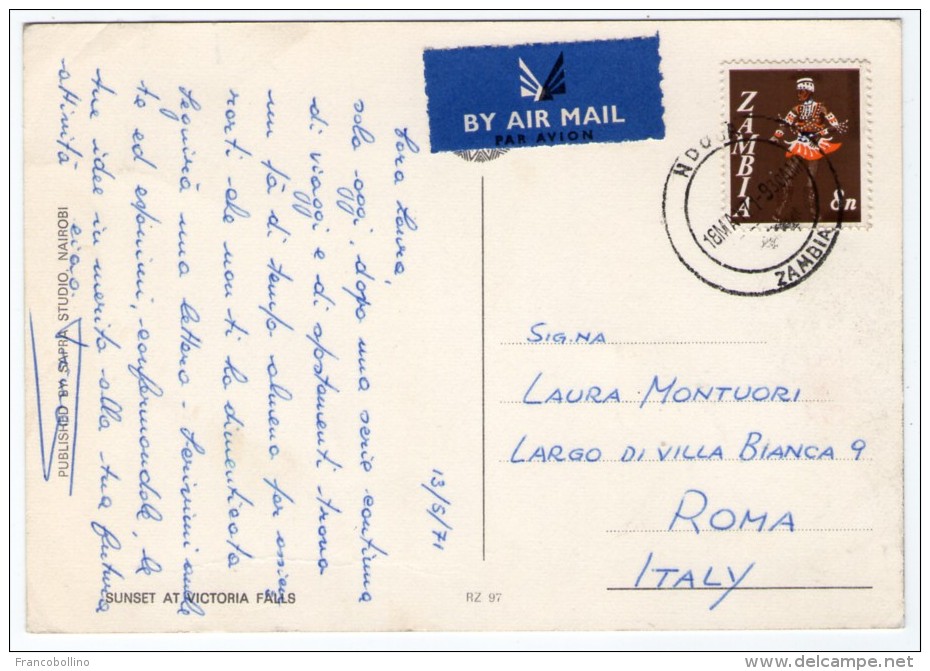 BY AIR MAIL
PAR AVION
ZAMBIA
8n
NDOLA
ZAMBIA
13/5/71
Cara Laura,
solo oggi, dopo una serie continua
di viaggi e di spostamenti trovo
un pò di tempo almeno per assicu
rarti che non ti ho dimenticata
Seguirà una lettera - Scrivimi anche
te ed esprimi, confermandole, le
tue idee in merito alla tua futura
attività
ciao
PUBLISHED BY SAPRA STUDIO, NAIROBI
SUNSET AT VICTORIA FALLS
RZ 97
SIG.NA
LAURA MONTUORI
LARGO DI VILLA BIANCA 9
ROMA
ITALY
Francobollino
www.delcampe.net